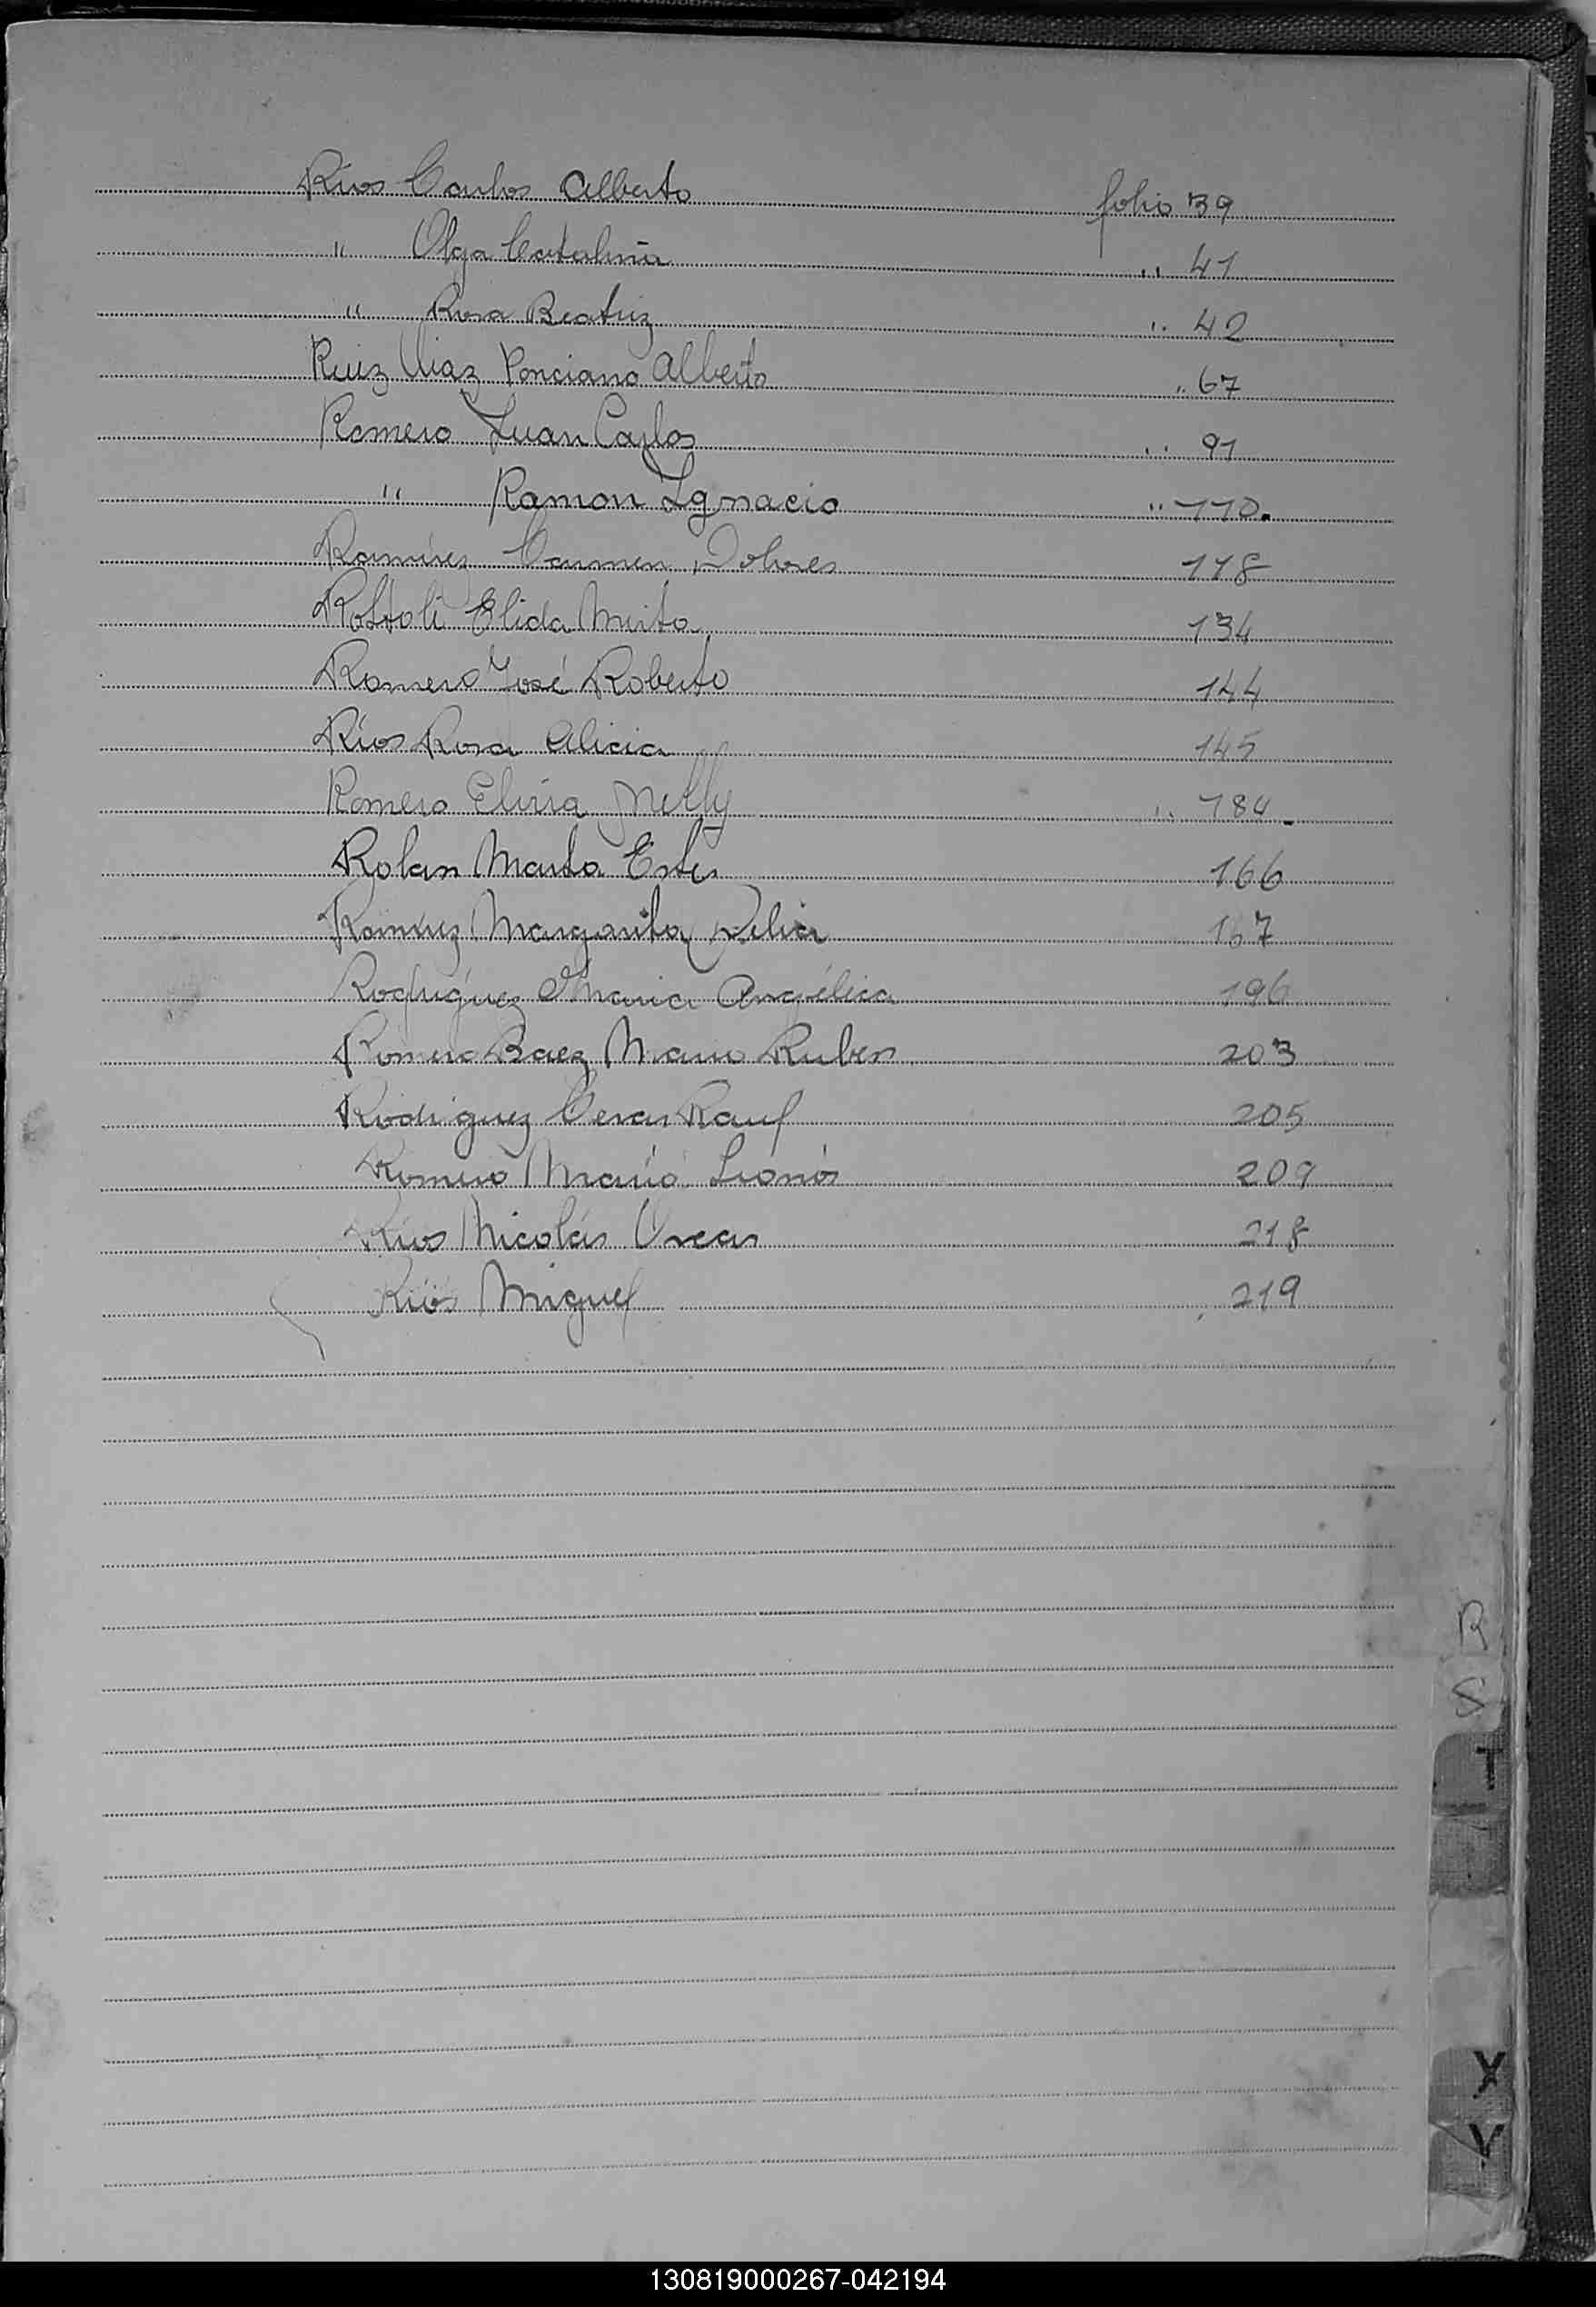 Ríos Carlos Alberto folio 39
" Olga Catalina " 41
" Rosa Beatriz " 42
Ruiz Diaz Ponciano Alberto " 67
Romero Juan Carlos " 91
" Ramon Ignacio " 110.
Ramirez Carmen Dolores 118
Rottoli Elida 134
Romero José Roberto 144
Ríos Rosa Alicia 145
Romero Elvira Nelly " 184
Rolan Marta Ester 166
Ramirez Margarita Delia 167
Rodriguez Maria Angélica 196
Romero Baez Mario Ruben 203
Rodriguez Cesar Raul 205
Romero Mario 209
Ríos Nicolás Oscar 218
Ríos Miguel 219
R
S
T
X
Y
130819000267-042194